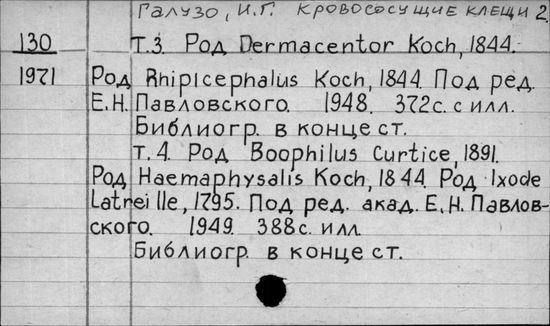 Галузо, И.Г. Кровососущие клещи 2
130 Т.3. Род Dermacentor Koch, 1844.
1971 Род Rhipicephalus Koch, 1844. Под ред.
Е.Н. Павловского. 1948. 372с. с илл.
Библиогр. в конце ст.
т. 4. Род Boophilus Curtice, 1891.
Род Haemaphysalis Koch, 1844. Род Ixode
Latreille, 1795. Под ред. акад. Е.Н. Павлов-
ского. 1949. 388с. илл.
Библиогр. в конце ст.